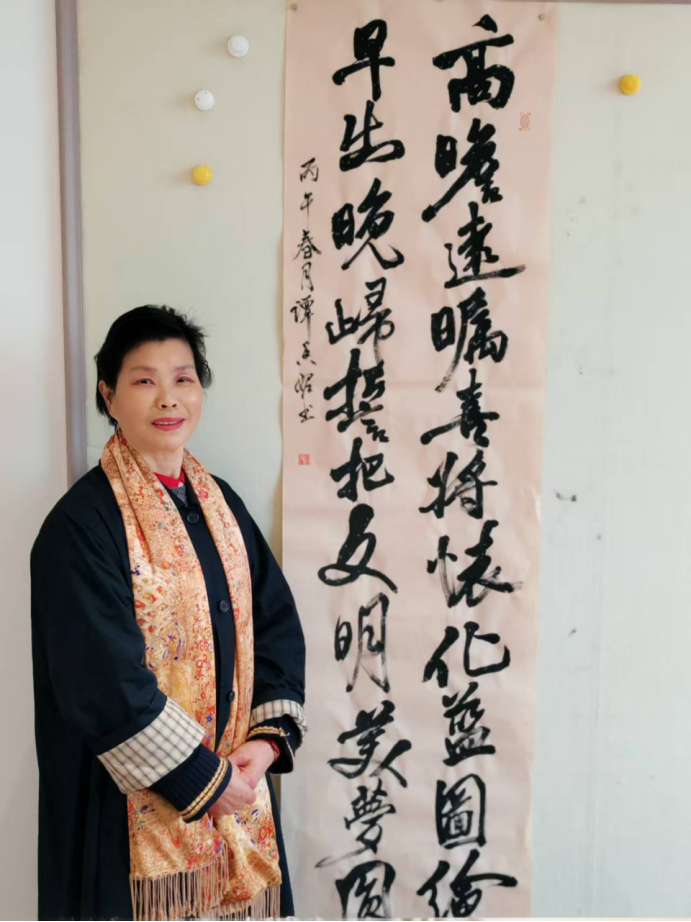 高瞻遠矚喜將懷化藍圖繪
早出晚歸誓把文明美夢圓
丙午春月譚书